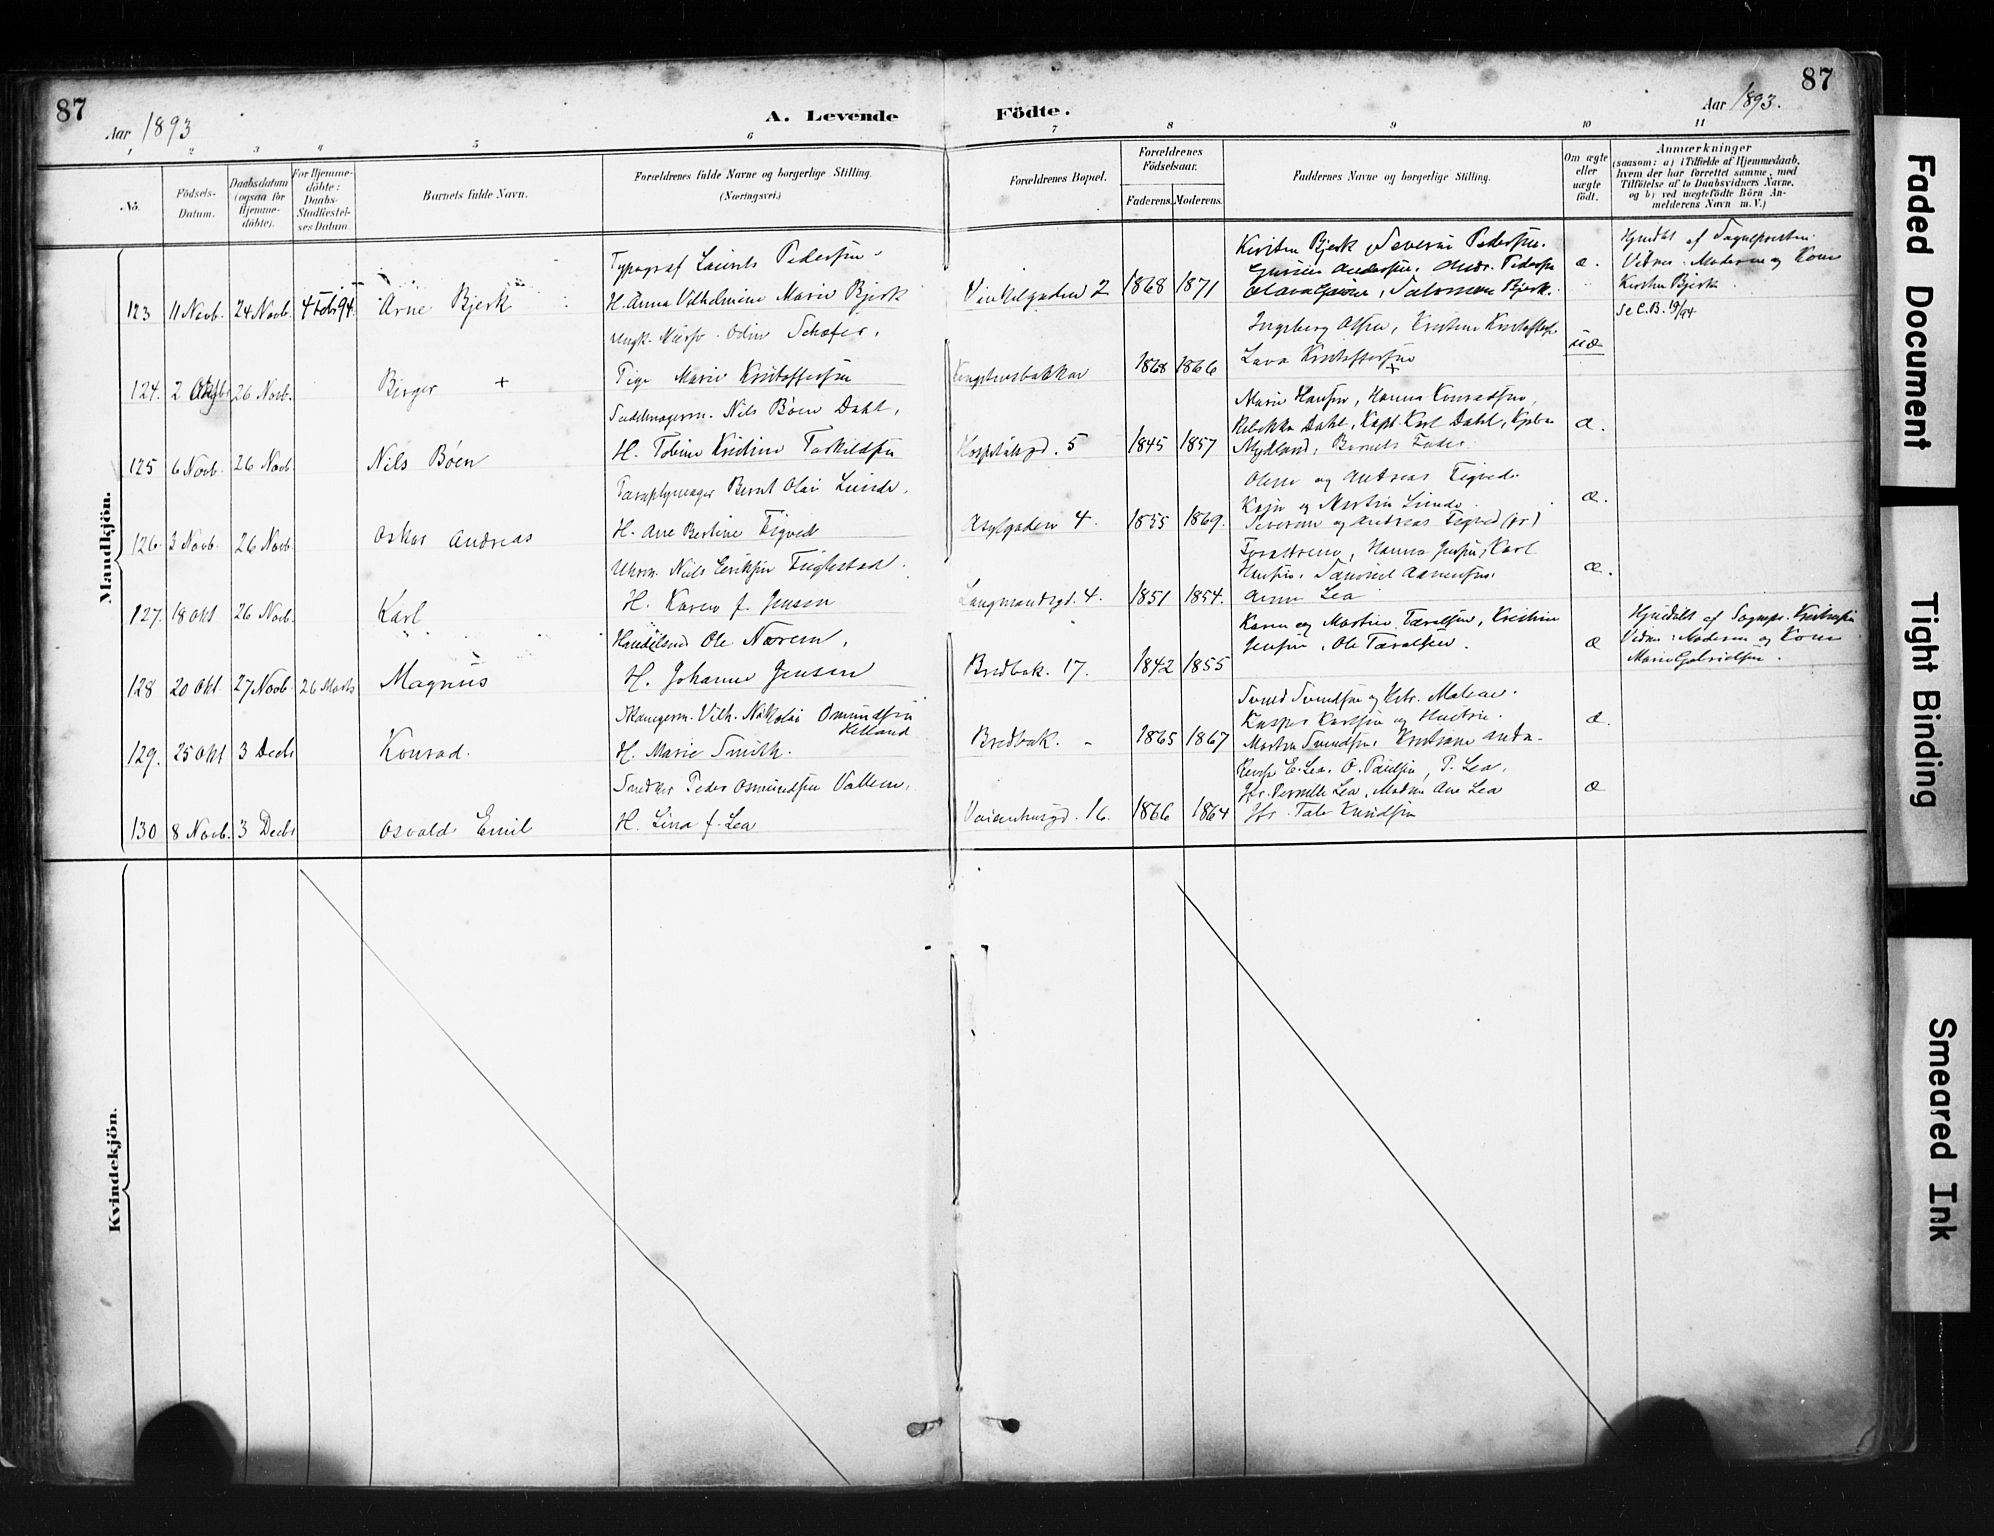 87
Aar 1893
A. Levende
Födte.
Aar 1893.
87
1 2 3 4 5 6 7 8 9 10 11
No.
Födsels-
Datum.
Daabsdatum
(ogsaa for
Hjemme-
döbte).
For Hjemme-
döbte:
Daabs-
Stadfæstel-
ses Datum.
Barnets fulde Navn.
Forældrenes fulde Navne og borgerlige Stilling.
(Næringsvei.)
Forældrenes Bopæl.
Forældrenes
Födselsaar.
Faderens. Moderens.
Faddernes Navne og borgerlige Stilling.
Om ægte
eller
uægte
födt.
Anmærkninger
(saasom: a) i Tilfælde af Hjemmedaab,
hvem der har forrettet samme, med
Tilföielse af to Daabsvidners Navne,
og b) ved uægtefödte Börn An-
melderens Navn m. V.)
Mandkjön.
123 11 Novb. 24 Novb. 4 Feb 94. Arne Bjerk
Typograf Laurits Pedersen
H. Anna Vilhelmine Marie Bjerk
Vinkelgaden 2 1868 1871
Kirsten Bjerk, Severin Pedersen.
Andersen, Andr. Pedersen
Salomon Bjerk.
æ.
Hjmdbt af Sognepresten.
Vidner: Moderen og Kone
Kirsten Bjerk
Se C.B. 19/94
124. 2 26 Novb. Birger +
Ungk. Odin Schøfer.
Pige Marie Kristoffersen
1868 1866
Ingeborg Olsen, Kristine Kristoffersen
Lava Kristoffersen
+
uæ
125 6 Novb. 26 Novb Nils Böen
Sadelmagerm. Nils Böen Dahl,
H. Tobine Kristine Torkildsen
Hospitalsgd. 5 1845 1857
Marie Hansen, Hanna Konradsen,
Rebekka Dahl, Kapt. Karl Dahl,
Mydland, Barnets Fader.
æ.
126 3 Novb. 26 Novb Oskar Andreas
Paraplymager Bernt Olai Lunde.
H. Ane Bertine Tigved
Asylgaden 4. 1855 1869.
Olene og Andreas Tigved.
Karin og Martin Lunde.
Severine og Andreas Tigved (jr)
æ.
127. 18 Okt 26 Novb. Karl
Uhrm. Niels Eriksen Fuglestad.
H. Karen f. Jensen
Langmandsgd. 4. 1851 1854.
Forældrene, Hanna Jensen, Karl
Hansen.
Anna Lea
æ.
128 20 Okt 27 Novb 26 Marts Magnus
Handelsmd Ole Nærem,
H. Johanne Jensen
Bredbak. 17. 1842 1855
Karen og Martin Taraldsen, Kristine
Jensen, Ole Taraldsen.
æ
Hjmdøbt af Sognepr.
Vidner: Moderen og Kone
Marie Gabrielsen.
129. 25 Okt 3 Decb Konrad.
Vilh. Nikolai Osmundsen
Helland
H. Marie Smith.
Bredbak. - 1865 1867
Svend Svendsen og Hstr. Malene.
Kasper Karlsen og Hustru.
Martin Svendsen, Kristiane Anda-
æ.
130 8 Novb. 3 Decb Osvald Emil
Snedker Peder Osmundsen Vatlem.
H. Lina f. Lea
Vaisenhusgd. 16. 1866 1864
E. Lea, O. Paulsen, P. Lea,
Jfr. Pernille Lea, Madam Ane Lea
Jfr. Tale Knudsen
æ
Kvindekjön.
Faded Document
Tight Binding
Smeared Ink